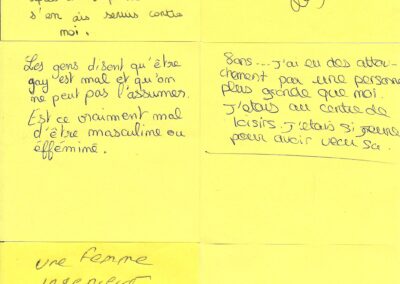 s'en ais servis contre
moi.
Les gens disent qu'être
gay est mal et qu'on
ne peut pas l'assumer.
Est ce vraiment mal
d'être masculine ou
éfféminé.
8ans... j'ai eu des attou-
chement par une personne
plus grande que moi.
J'etais au centre de
loisirs. J'etais si jeune
pour avoir vecu sa.
une femme